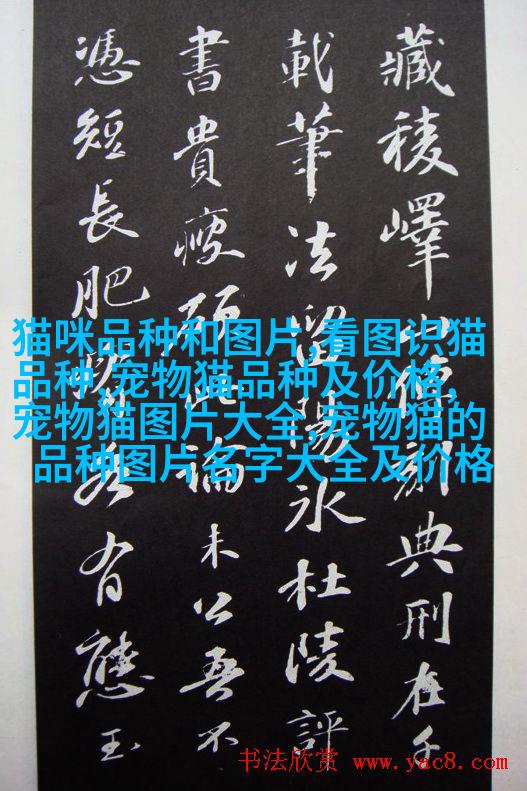 藏稜嶧山傳刻典刑在千
載筆法留陽氷杜陵評
書貴瘦硬此論未公吾不
憑短長肥瘦各有態玉
猫咪品种和图片,看图识猫
品种,宠物猫品种及价格,
宠物猫图片大全,宠物猫的
品种图片名字大全及价格
书法欣赏 www.yac8.com